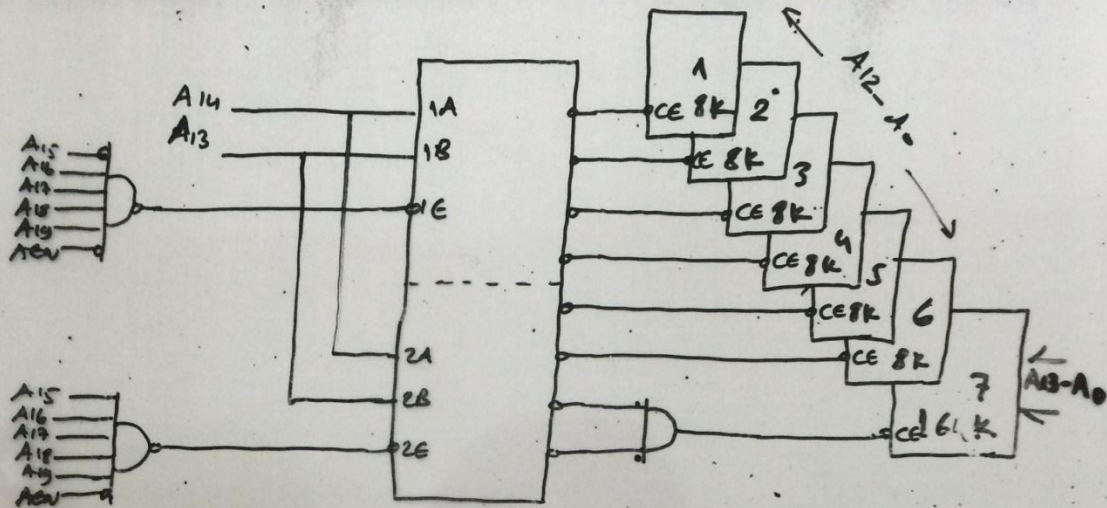 A14
A13
A15
A16
A17
A18
A19
AEN
A15
A16
A17
A18
A19
AEN
1A
1B
1E
2A
2B
2E
1
CE 8K
2
CE 8K
3
CE 8K
4
CE 8K
5
CE 8K
6
CE 8K
7
CE 16K
A12-A0
A13-A0